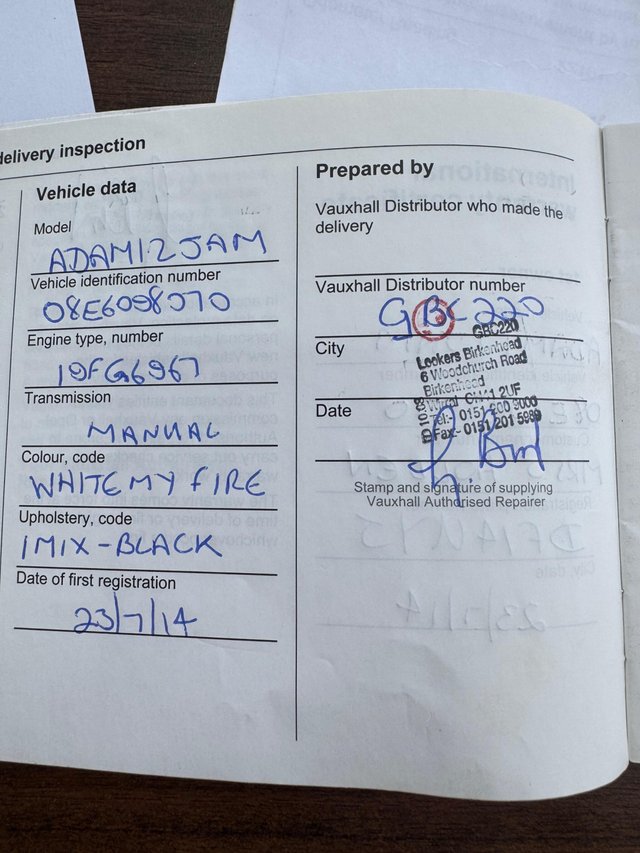 delivery inspection
Vehicle data
Model
ADAM 1.2 JAM
Vehicle identification number
08E6098070
Engine type, number
19FG6967
Transmission
MANUAL
Colour, code
WHITE MY FIRE
Upholstery, code
1MIX-BLACK
Date of first registration
23/7/14
Prepared by
Vauxhall Distributor who made the
delivery
Vauxhall Distributor number
GBC220
GBC220
City
Lookers Birkenhead
6 Woodchurch Road
Birkenhead
Wirral CH41 2UF
Date
Tel:- 0151 600 3000
Fax:- 0151 201 5989
Stamp and signature of supplying
Vauxhall Authorised Repairer